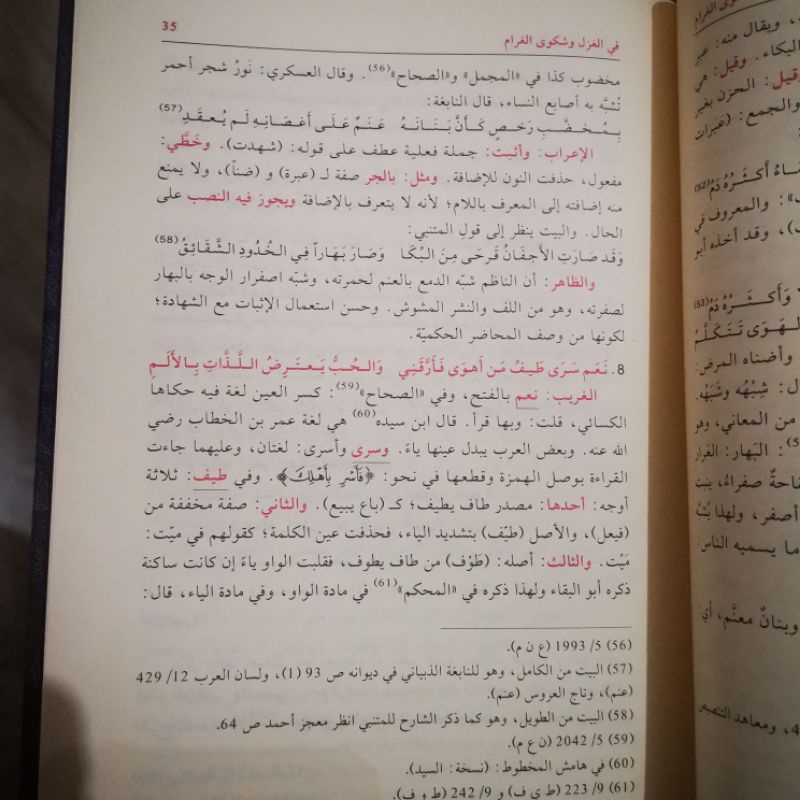 35
في الغزل وشكوى الغرام
مخضوب كذا في «المجمل» و«الصحاح»(56). وقال العسكري: نَورُ شجر أحمر
تُشبَّه به أصابع النساء، قال النابغة:
بِـمُـخـضَّـبِ رَخـصٍ كَـأَنَّ بَـنَـانَـهُ عَـنَـمٌ عَـلَـى أَغـصَـانِـهِ لَـم يُـعـقَـدِ(57)
الإعراب: وأثبت: جملة فعلية عطف على قوله: (شهدت). وخَطَّي:
مفعول، حذفت النون للإضافة. ومثل: بالجر صفة لـ (عبرة) و (ضناً)، ولا يمنع
منه إضافته إلى المعرف باللام؛ لأنه لا يتعرف بالإضافة ويجوز فيه النصب على
الحال. والبيت ينظر إلى قولِ المتنبي:
وَقَد صَارَتِ الأَجفَانُ قَرحَى مِنَ البُكَا وَصَارَ بَهَاراً فِي الخُدُودِ الشَّقَائِقُ(58)
والظاهر: أن الناظم شبّه الدمع بالعنم لحمرته، وشبّه اصفرار الوجه بالبهار
لصفرته، وهو من اللف والنشر المشوش. وحسن استعمال الإثبات مع الشهادة؛
لكونها من وصف المحاضر الحكميّة.
8. نَعَم سَرَى طَيفُ مَن أَهوَى فَأَرَّقَنِي وَالـحُـبُّ يَـعـتَـرِضُ الـلَّـذَّاتِ بِـالأَلَـمِ
الغريب: نعم بالفتح، وفي «الصحاح»(59): كسر العين لغة فيه حكاها
الكسائي، قلت: وبها قرأ. قال ابن سيده(60) هي لغة عمر بن الخطاب رضي
الله عنه. وبعض العرب يبدل عينها ياءً. وسرى وأسرى: لغتان، وعليهما جاءت
القراءة بوصل الهمزة وقطعها في نحو: ﴿فَأَسْرِ بِأَهْلِكَ﴾. وفي طيف: ثلاثة
أوجه: أحدها: مصدر طاف يطيف؛ كـ (باع يبيع). والثاني: صفة مخففة من
(فيعل)، والأصل (طيّف) بتشديد الياء، فحذفت عين الكلمة؛ كقولهم في ميّت:
مَيْت. والثالث: أصله: (طَوْف) من طاف يطوف، فقلبت الواو ياءً إن كانت ساكنة
ذكره أبو البقاء ولهذا ذكره في «المحكم»(61) في مادة الواو، وفي مادة الياء، قال:
(56) 5/ 1993 (ع ن م).
(57) البيت من الكامل، وهو للنابغة الذبياني في ديوانه ص 93 (1)، ولسان العرب 12/ 429
(عنم)، وتاج العروس (عنم).
(58) البيت من الطويل، وهو كما ذكر الشارح للمتنبي انظر معجز أحمد ص 64.
(59) 5/ 2042 (ن ع م).
(60) في هامش المخطوط: (نسخة: السيد).
(61) 9/ 223 (ط ي ف) و 9/ 242 (ط و ف).
، ويقال منه: عبر
البكاء. وقيل: هي
وقيل: الحزن بغير
والجمع: (عَبَرات
أَكـثَـرُهُ دَمُ(52)
: والمعروف في
، وقد أخذه أبو
وَأَكـثَـرُهُ دَمُ(53)
الـهَـوَى تَـتَـكَـلَّـمُ
وأضناه المرض:
: شِبْهُه وشَبَهُه.
من المعاني، وهو
: البَهار: العَرار
صفراءُ، ينبت
أصفر، ولهذا
ما يسميه الناس:
وبنانٌ معنَّم، أي:
، ومعاهد التنصيص